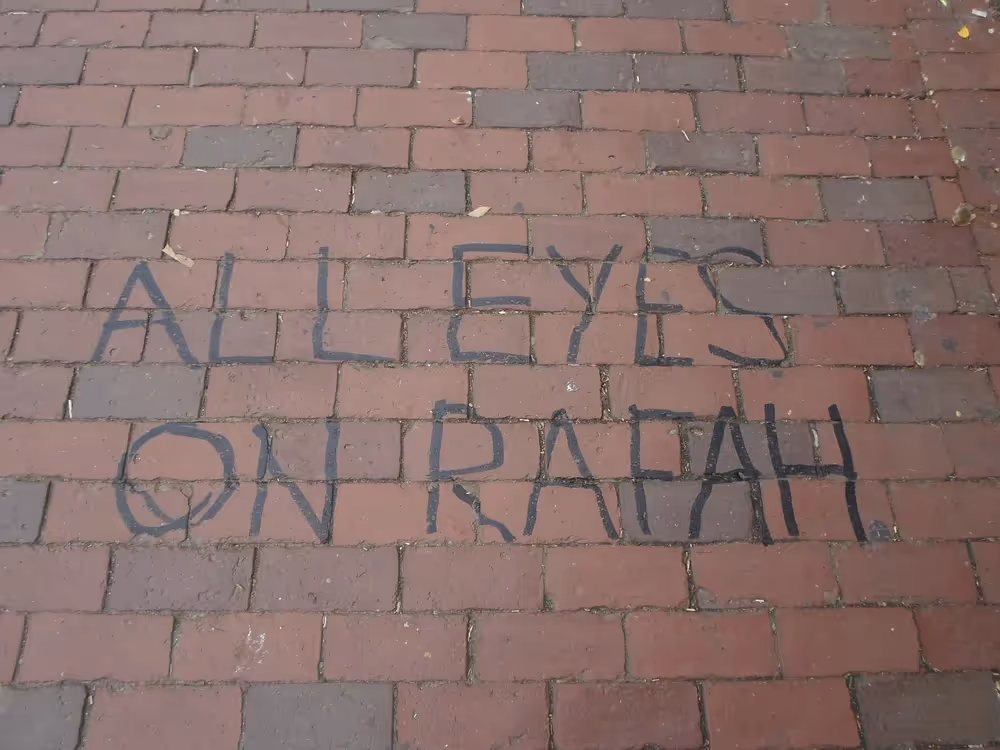 ALL EYES
ON RAFAH